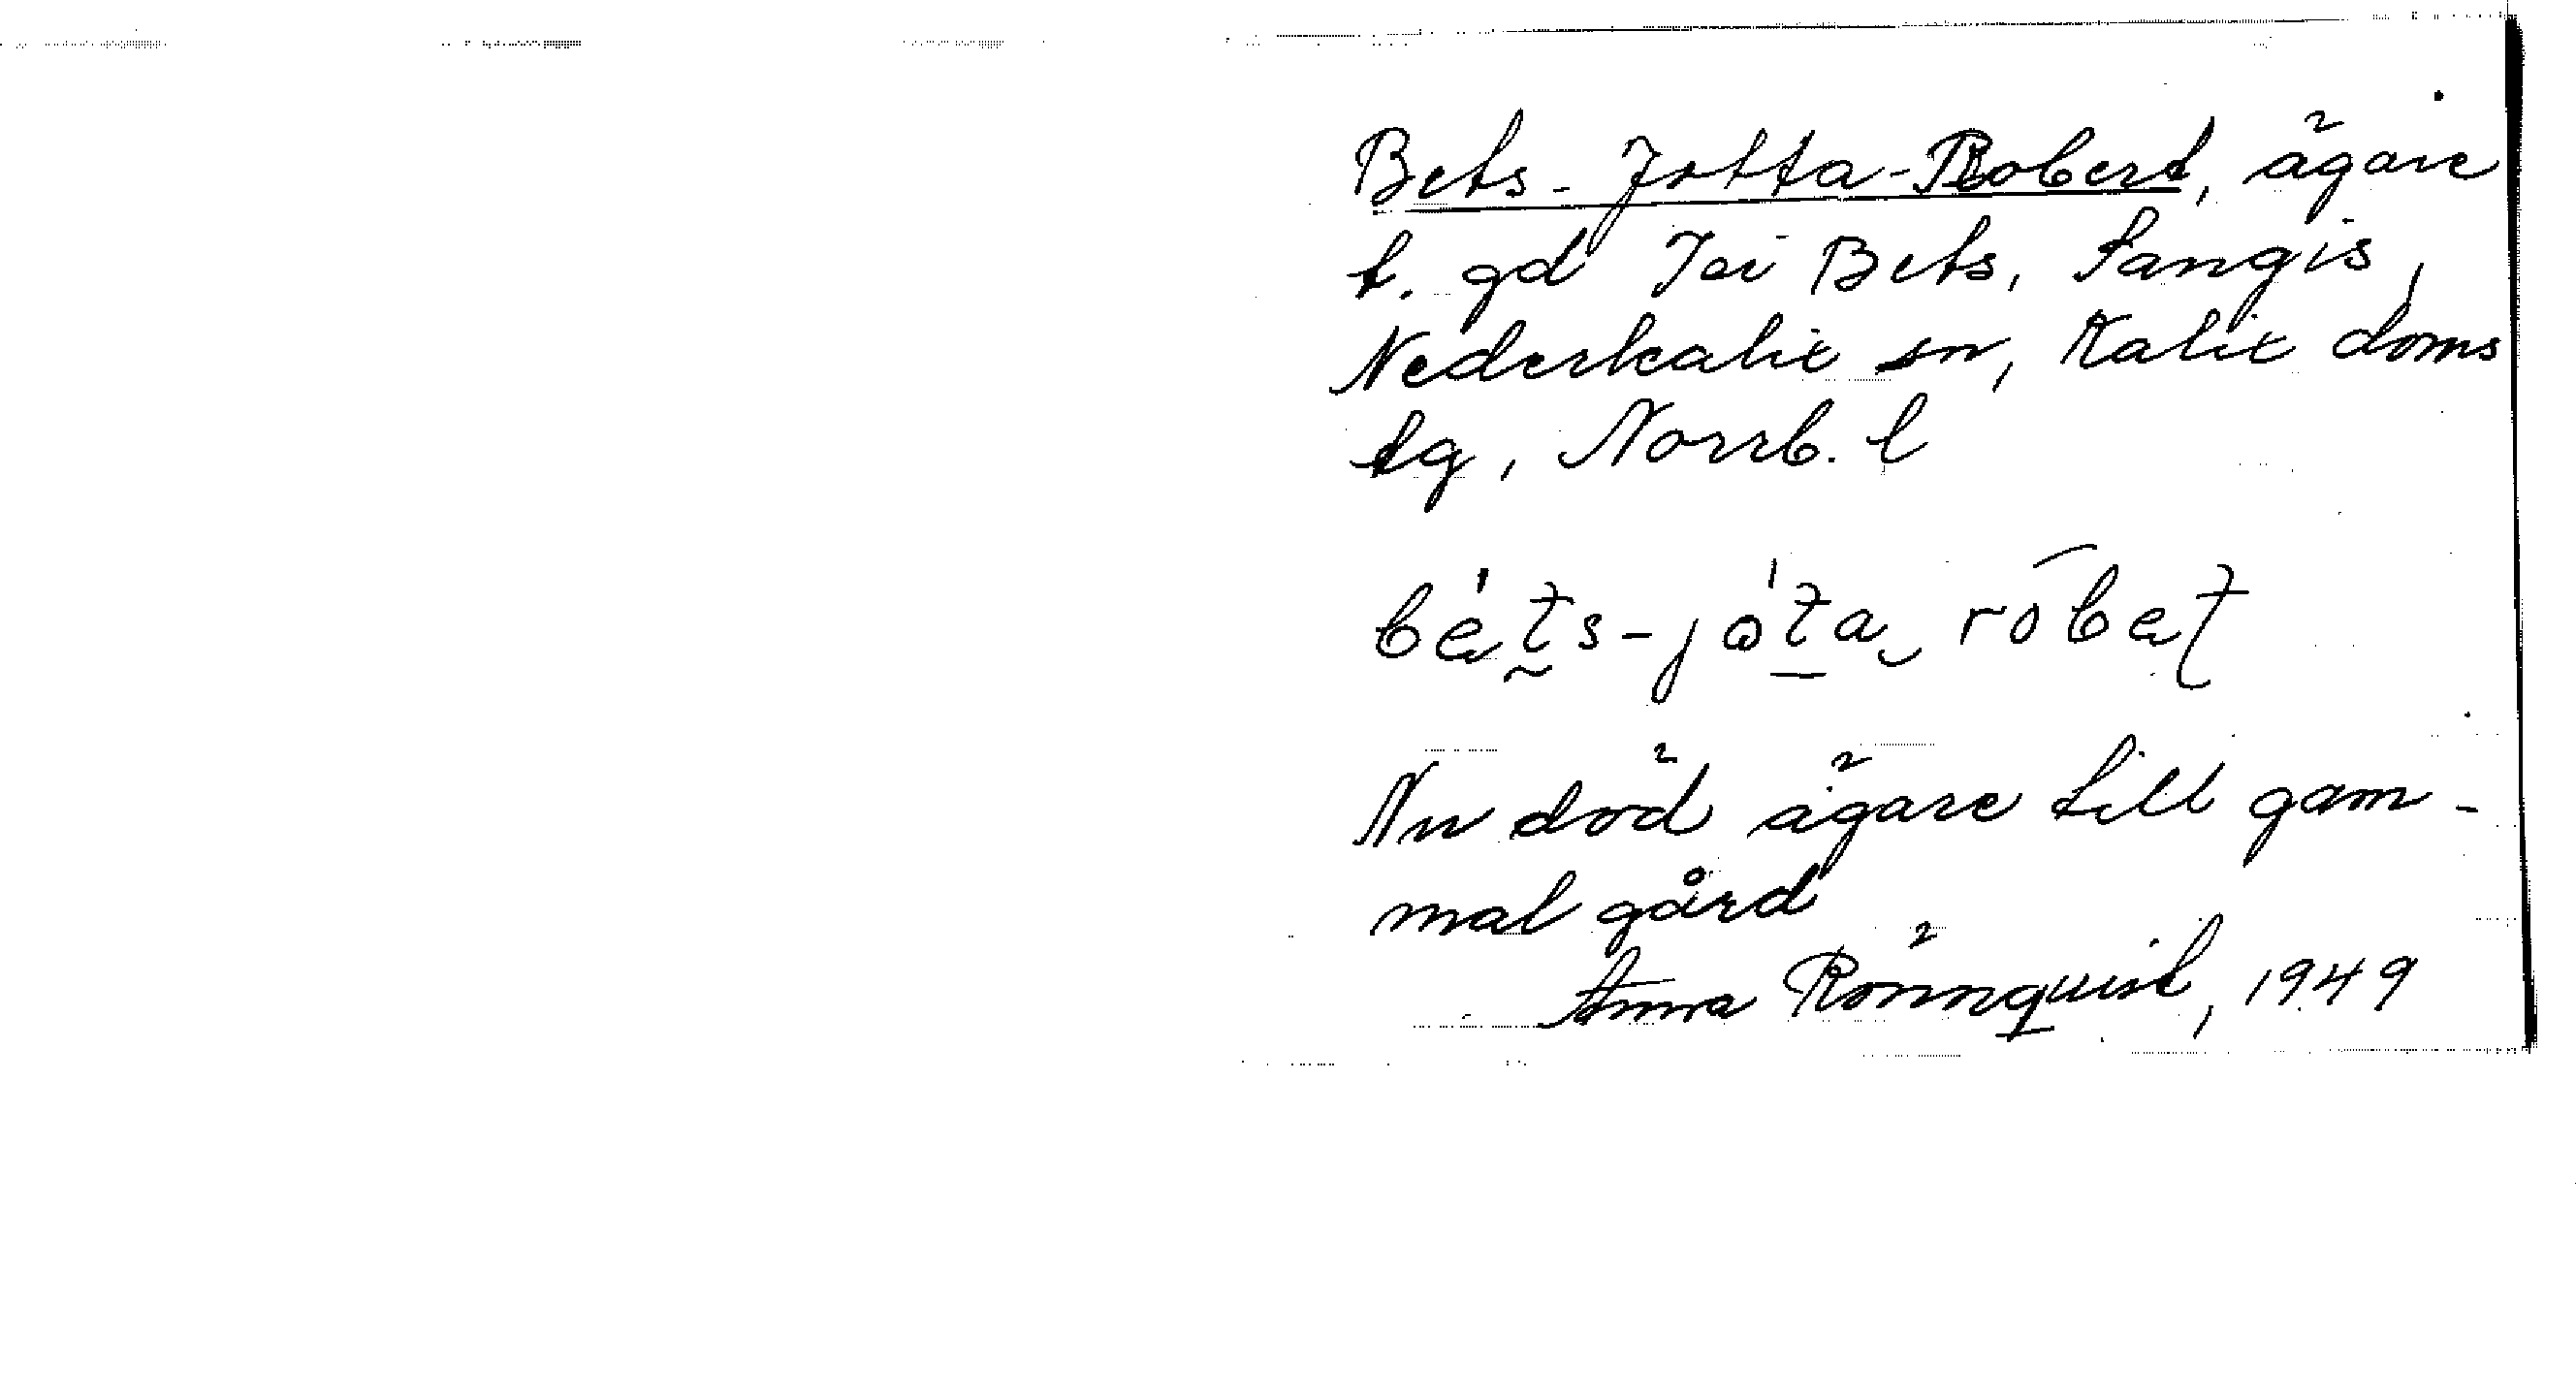 Bets-Jotta-Robert, ägare
t. gd Joi Bets, Sangis,
Nederkalix sn, Kalix doms
tg, Norrb. l
Nu död ägare till gam-
mal gård
Anna Rönnquist, 1949